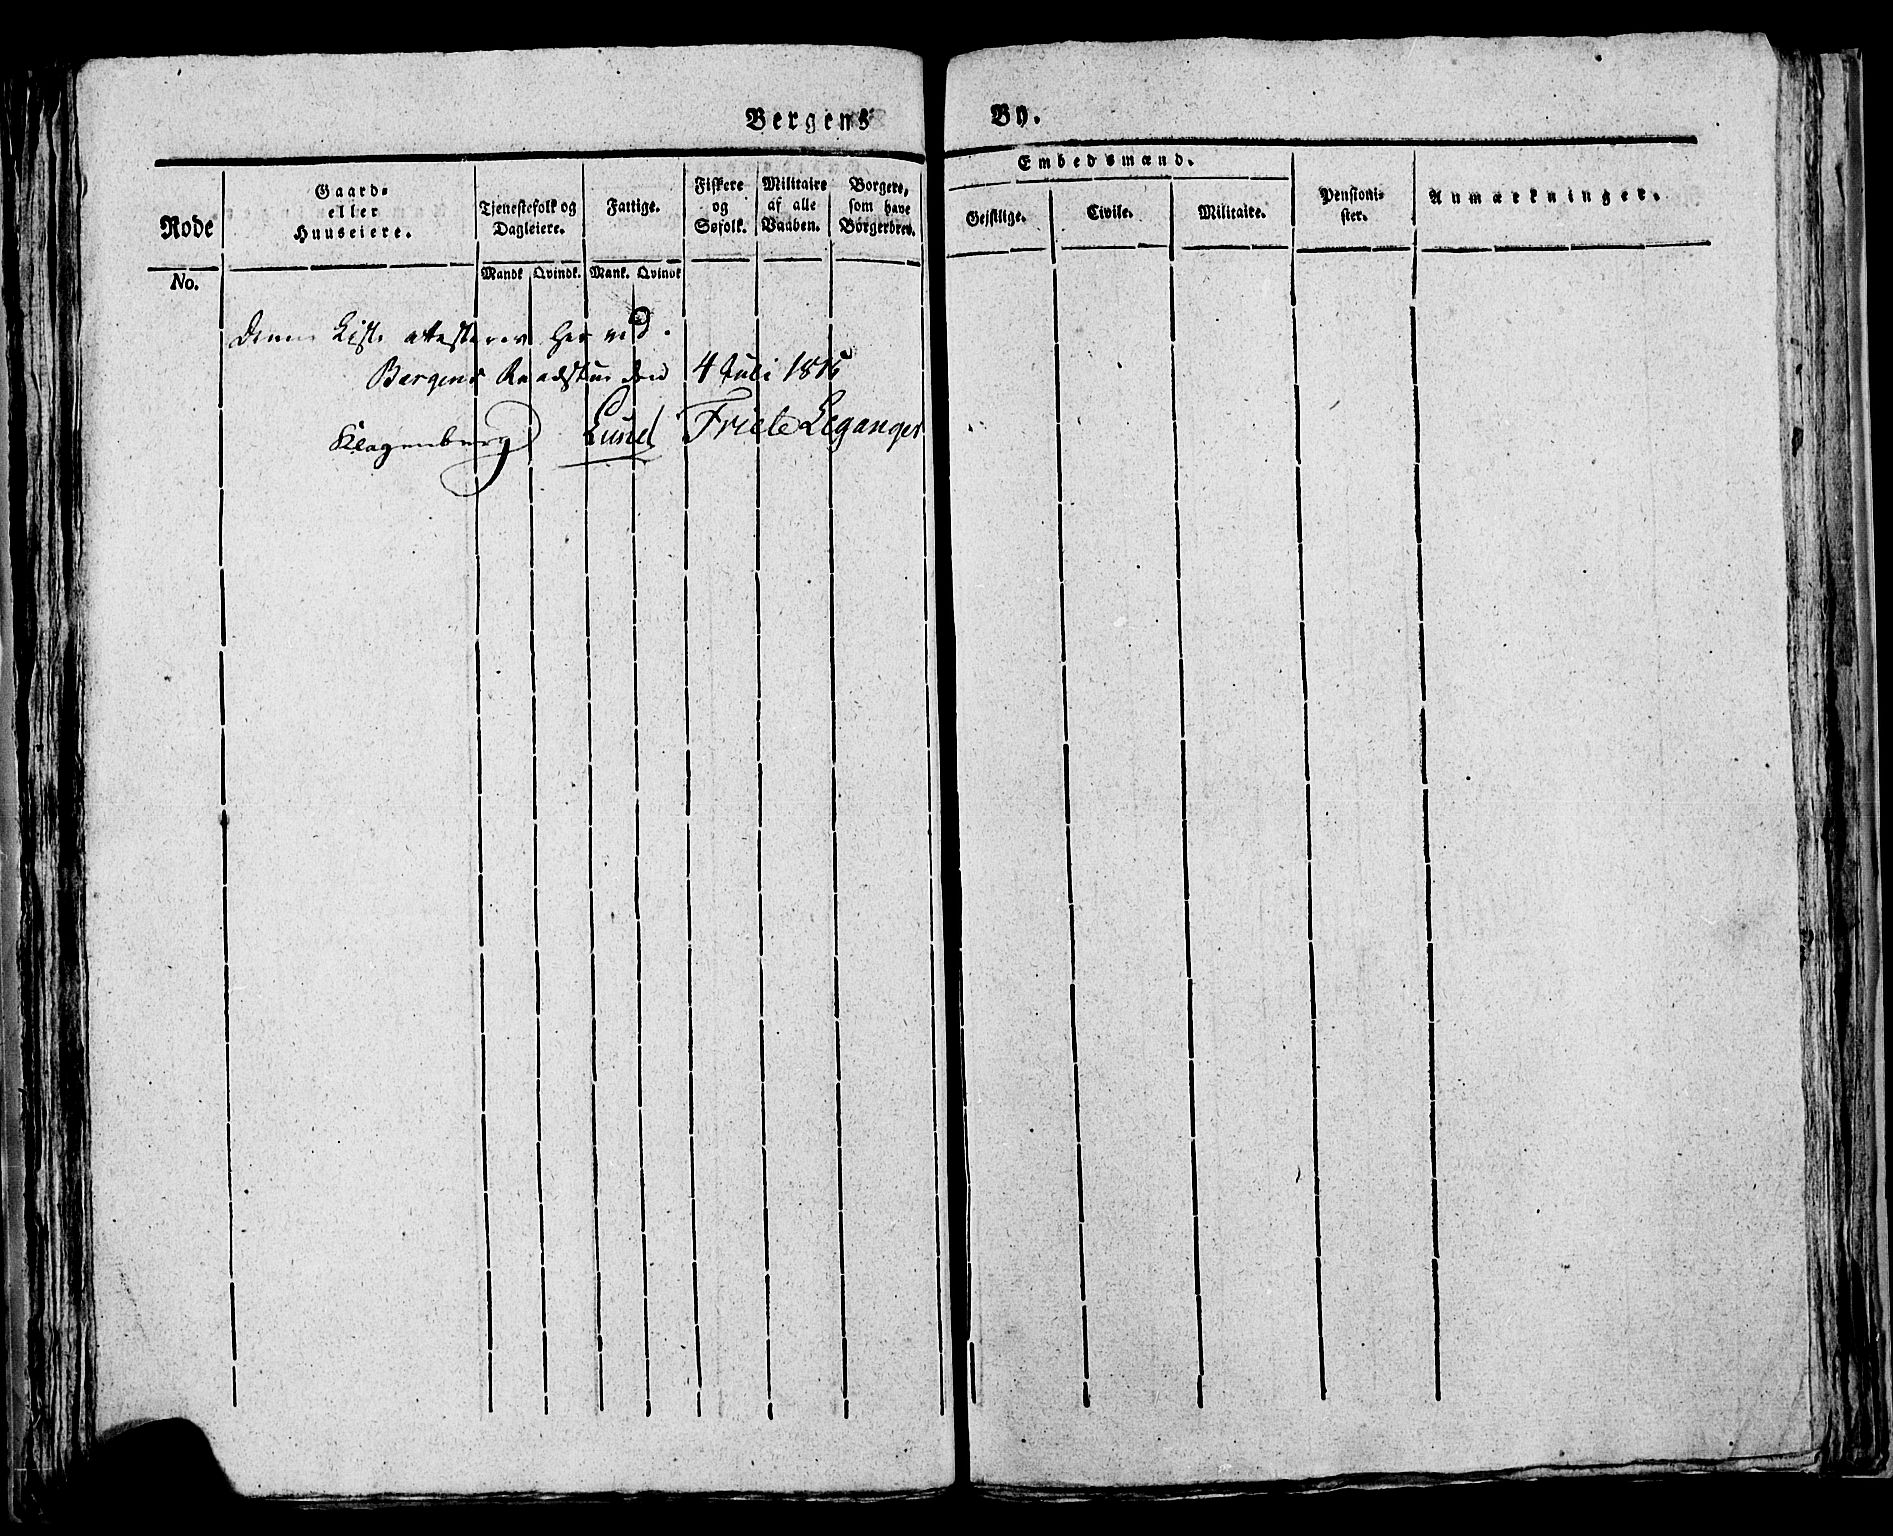 Bergens By.
Embedsmænd.
Rode
Gaard-
eller
Huuseiere.
Tjenestefolk og
Dagleiere.
Fattige.
Fiskere
og
Søfolk.
Militaire
af alle
Vaaben.
Borgere,
som have
Borgerbrev.
Geistlige.
Civile.
Militaire.
Pensioni-
ster.
Anmærkninger.
No.
Mandk Qvindk. Mank. Qvindk
Denne Liste attesteres herved.
Bergens Raadstue den 4 Juli 1815
Klagenberg Lund Friele Leganger